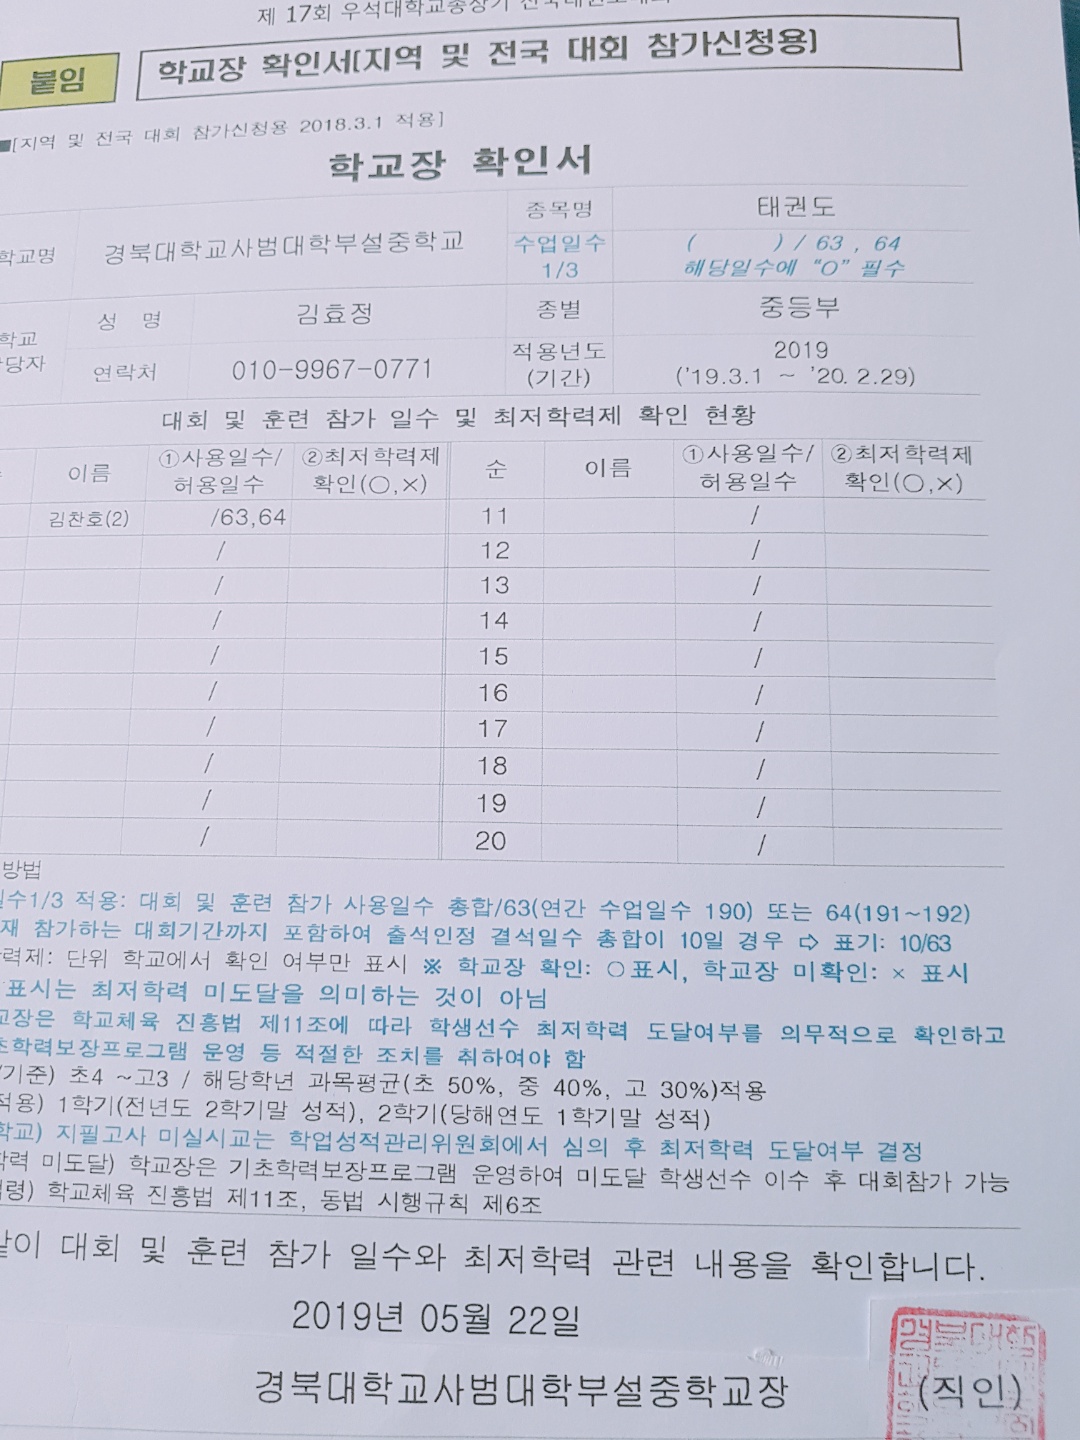 제 17회 우석대학교총장기 전국태권도대회
붙임
학교장 확인서[지역 및 전국 대회 참가신청용]
■[지역 및 전국 대회 참가신청용 2018.3.1 적용]
학교장 확인서
학교명 경북대학교사범대학부설중학교 종목명 태권도
수업일수 1/3 ( ) / 63 , 64
해당일수에 “O” 필수
학교 담당자 성 명 김효정 종별 중등부
연락처 010-9967-0771 적용년도 (기간) 2019
('19.3.1 ~ '20. 2.29)
대회 및 훈련 참가 일수 및 최저학력제 확인 현황
이름 ①사용일수/허용일수 ②최저학력제 확인(○,×) 순 이름 ①사용일수/허용일수 ②최저학력제 확인(○,×)
김찬호(2) /63,64 11 /
/ 12 /
/ 13 /
/ 14 /
/ 15 /
/ 16 /
/ 17 /
/ 18 /
/ 19 /
/ 20 /
방법
일수1/3 적용: 대회 및 훈련 참가 사용일수 총합/63(연간 수업일수 190) 또는 64(191~192)
재 참가하는 대회기간까지 포함하여 출석인정 결석일수 총합이 10일 경우 ⇨ 표기: 10/63
력제: 단위 학교에서 확인 여부만 표시 ※ 학교장 확인: ○표시, 학교장 미확인: × 표시
표시는 최저학력 미도달을 의미하는 것이 아님
교장은 학교체육 진흥법 제11조에 따라 학생선수 최저학력 도달여부를 의무적으로 확인하고
초학력보장프로그램 운영 등 적절한 조치를 취하여야 함
/기준) 초4 ~고3 / 해당학년 과목평균(초 50%, 중 40%, 고 30%)적용
적용) 1학기(전년도 2학기말 성적), 2학기(당해연도 1학기말 성적)
학교) 지필고사 미실시교는 학업성적관리위원회에서 심의 후 최저학력 도달여부 결정
학력 미도달) 학교장은 기초학력보장프로그램 운영하여 미도달 학생선수 이수 후 대회참가 가능
령) 학교체육 진흥법 제11조, 동법 시행규칙 제6조
같이 대회 및 훈련 참가 일수와 최저학력 관련 내용을 확인합니다.
2019년 05월 22일
경북대학교사범대학부설중학교장 (직인)
경북대학